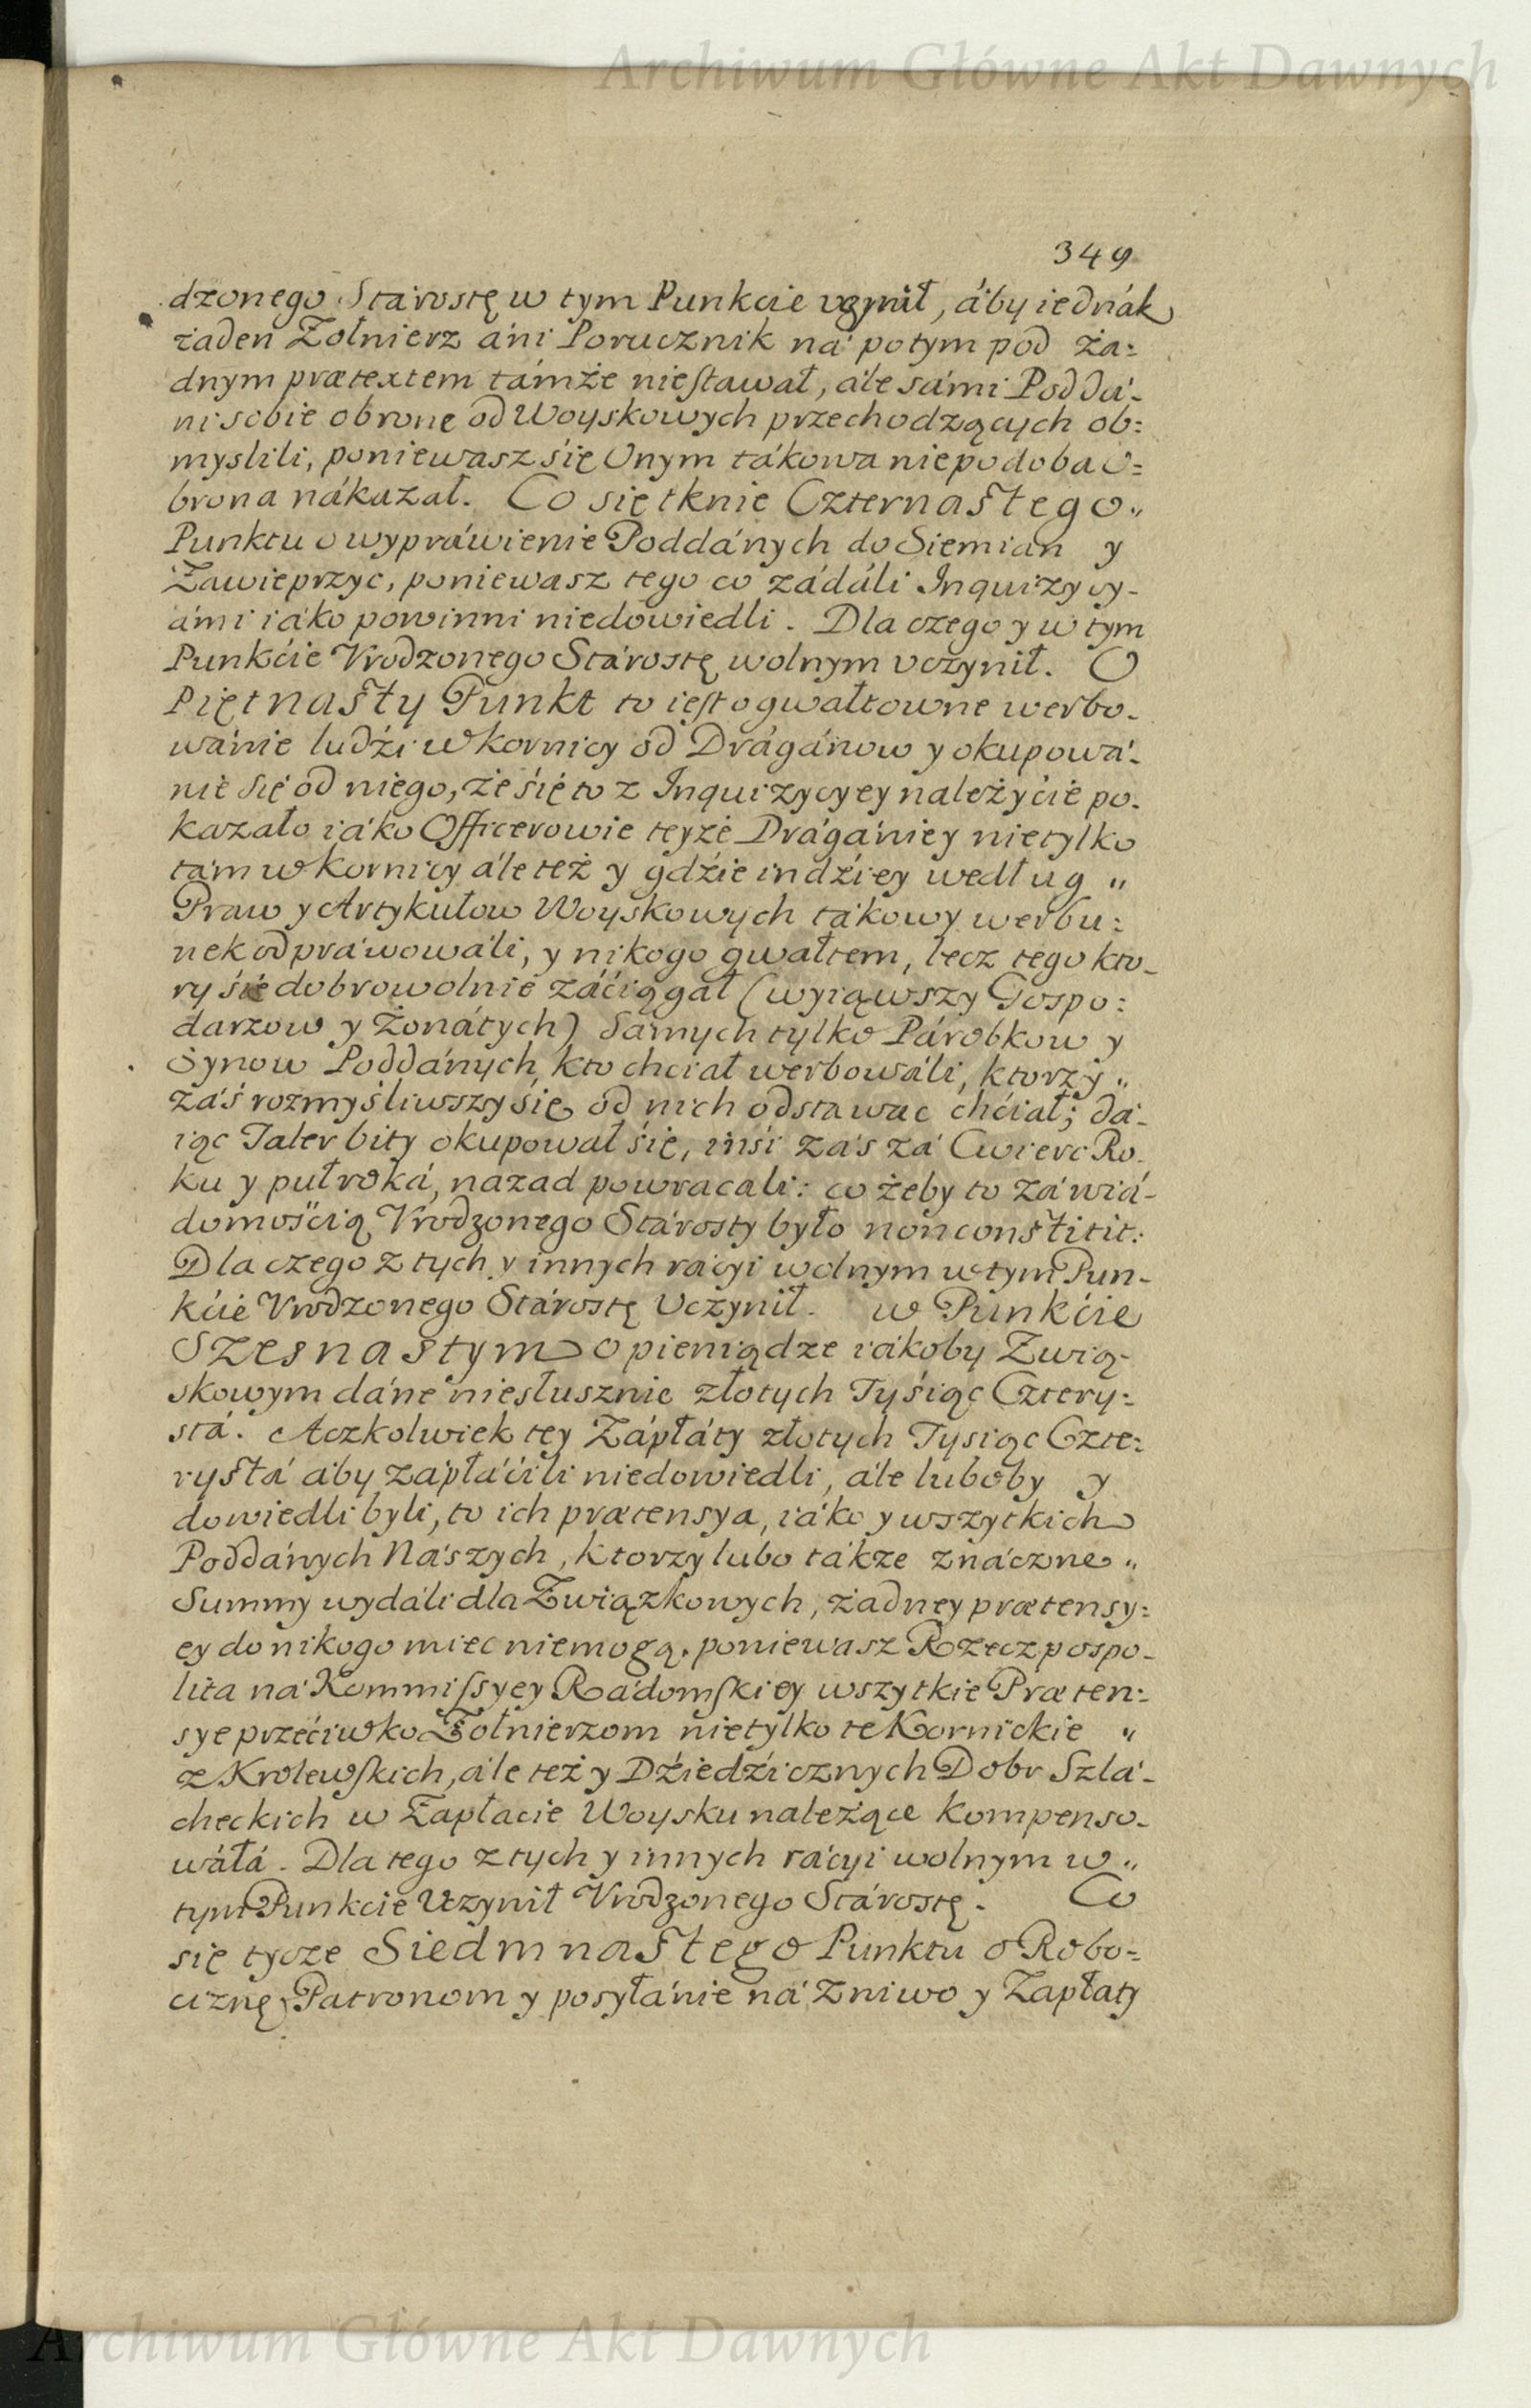 Archiwum Główne Akt Dawnych
349
dzonego Stárostę w tym Punkcie vczynił, áby iednák
żaden Zołnierz áni Porucznik ná potym pod ża:
dnym prætextem támże nieſtawał, ále sámi Poddá-
ni sobie obronę od Woyskowych przechodzących ob:
myslili, poniewasz się Onym tákowa niepodoba O:
brona nákazał. Co się tknie Czternaſtego „
Punktu o wypráwienie Poddánych do Siemian y
Zawieprzyc, poniewasz tego co zádáli Inquizycy-
ámi iáko powinni niedowiedli. Dla czego y w tym
Punkćie Vrodzonego Stárostę wolnym vczynił. O
Piętnaſty Punkt to ieſt o gwałtowne werbo-
wánie ludźi w Kornicy od Drágánow y okupowá-
nie się od niego, że się to z Inquizycyey należyćie po-
kazało iáko Officerowie teyże Drágániey nietylko
tám w Kornicy ále też y gdźie indźiey według „
Praw y Artykułow Woyskowych tákowy werbu:
nek odpráwowáli, y nikogo gwałtem, lecz tego kto-
ry się dobrowolnie záćiągał (wyiąwszy Gospo:
darzow y Żonátych) Samych tylko Párobkow y
Synow Poddánych, kto chciał werbowáli, ktorzy „
záś rozmyśliwszy się od nich odstawac chćiał; dá-
iąc Taler bity okupował się, inśi zás zá Cwierc Ro-
ku y puł roká, nazad powracali: co żeby to zá wiá-
domośćią Vrodzonego Stárosty było non constitit:
Dla czego z tych y innych rácyi wolnym w tym Pun-
kćie Vrodzonego Stárostę Vczynił. w Punkćie
Szesnastym o pieniądze iákoby Zwią-
skowym dáne niesłusznie złotych Tyśiąc Cztery:
stá. Aczkolwiek tey Zápłáty złotych Tysiąc Czte:
ryſtá áby zápłáćili niedowiedli, ále luboby y
dowiedli byli, to ich prætensya, iáko y wszytkich
Poddánych Nászych, ktorzy lubo tákze znáczne „
Summy wydáli dla Związkowych, żadney prætensy:
ey do nikogo miec niemogą, poniewasz Rzeczpospo-
lita ná Kommiſsyey Rádomſkiey wszytkie Præten:
sye przećiwko Żołnierzom nietylko te Kornickie „
z Krolewſkich, ále też y Dźiedźicznych Dobr Szlá-
checkich w Zapłacie Woysku należące kompenso-
wáłá. Dla tego z tych y innych rácyi wolnym w „
tym Punkcie Uczynił Vrodzonego Stárostę. Co
się tycze Siedmnaſtego Punktu o Robo:
ciznę Patronom y posyłánie ná Zniwo y Zapłaty
Archiwum Główne Akt Dawnych